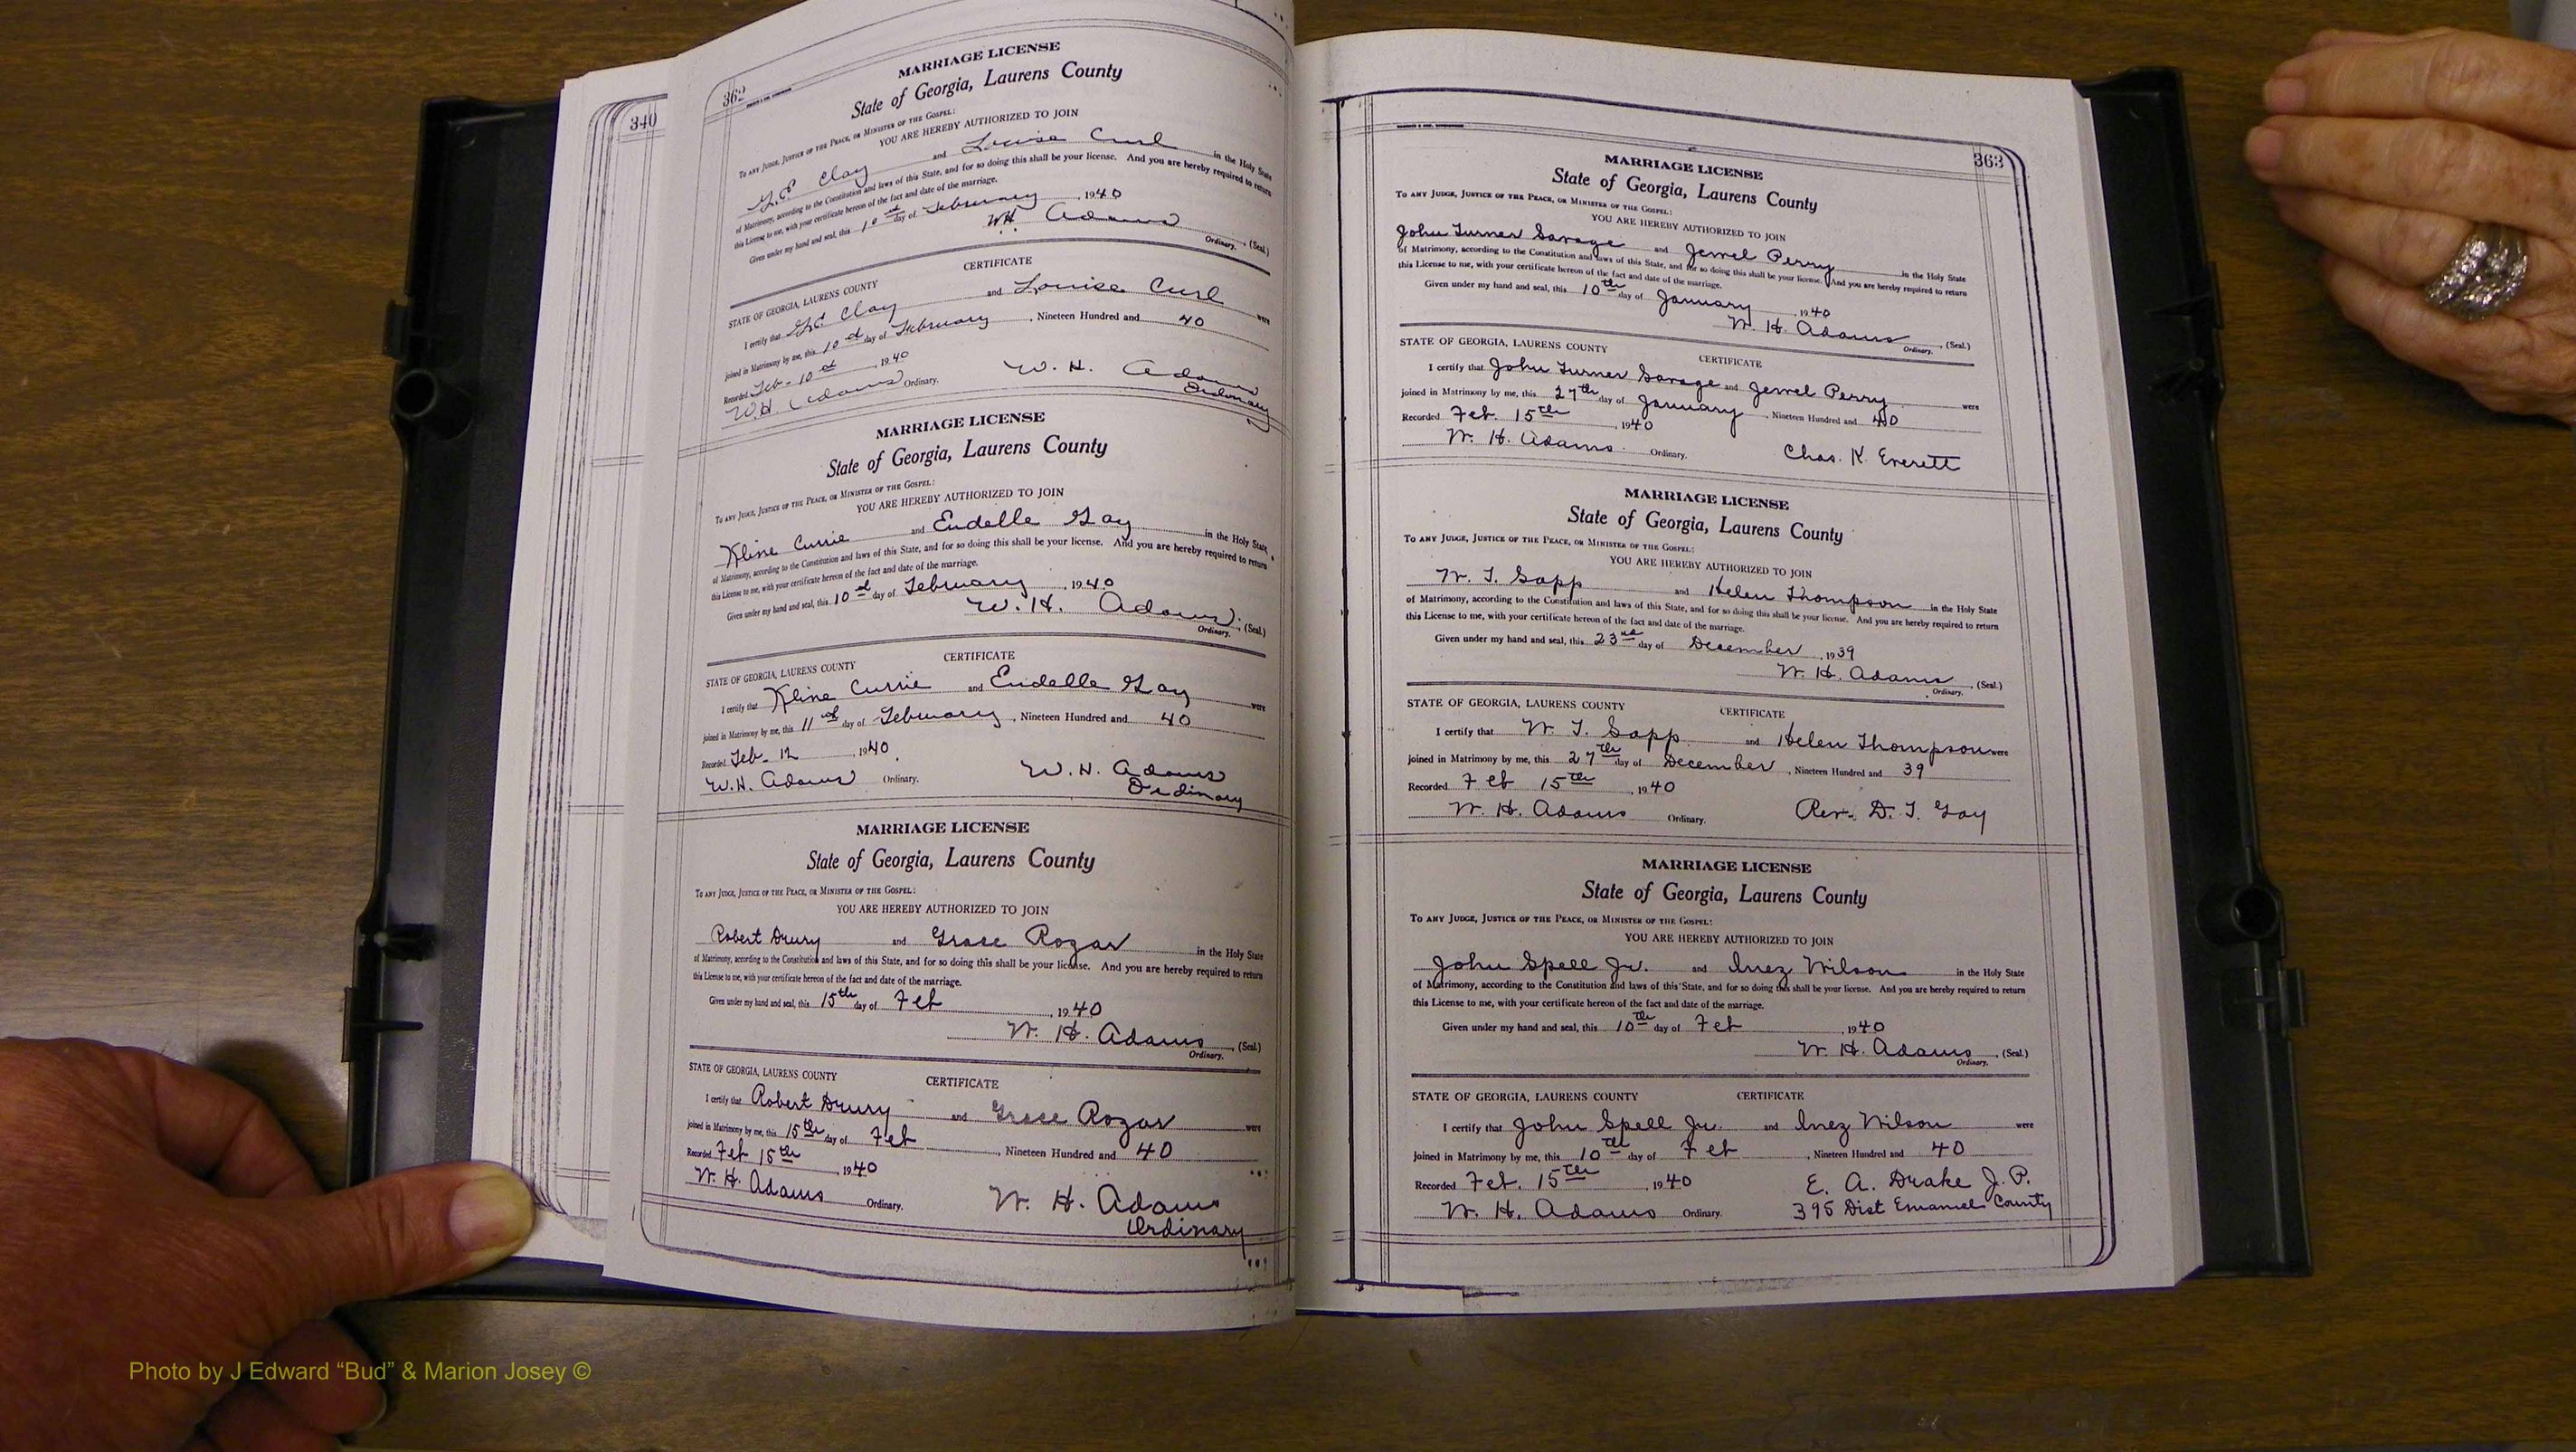 340
362
MARRIAGE LICENSE
State of Georgia, Laurens County
To any Judge, Justice of the Peace, or Minister of the Gospel:
YOU ARE HEREBY AUTHORIZED TO JOIN
Clay and Louise Curl in the Holy State
of Matrimony, according to the Constitution and laws of this State, and for so doing this shall be your license. And you are hereby required to return
this License to me, with your certificate hereon of the fact and date of the marriage.
Given under my hand and seal, this 10 day of February, 1940
W.H. Adams (Seal.)
Ordinary.
CERTIFICATE
STATE OF GEORGIA, LAURENS COUNTY
I certify that Clay and Louise Curl were
joined in Matrimony by me, this 10 day of February, Nineteen Hundred and 40
Recorded Feb - 10, 1940
W.H. Adams Ordinary. W. H. Adams
Ordinary
MARRIAGE LICENSE
State of Georgia, Laurens County
To any Judge, Justice of the Peace, or Minister of the Gospel:
YOU ARE HEREBY AUTHORIZED TO JOIN
Kline Currie and Eudelle Gay in the Holy State
of Matrimony, according to the Constitution and laws of this State, and for so doing this shall be your license. And you are hereby required to return
this License to me, with your certificate hereon of the fact and date of the marriage.
Given under my hand and seal, this 10 day of February, 1940
W. H. Adams. (Seal.)
Ordinary.
CERTIFICATE
STATE OF GEORGIA, LAURENS COUNTY
I certify that Kline Currie and Eudelle Gay were
joined in Matrimony by me, this 11 day of February, Nineteen Hundred and 40
Recorded Feb - 12, 1940
W.H. Adams Ordinary. W. H. Adams
Ordinary
MARRIAGE LICENSE
State of Georgia, Laurens County
To any Judge, Justice of the Peace, or Minister of the Gospel:
YOU ARE HEREBY AUTHORIZED TO JOIN
Robert Drury and Grace Rozar in the Holy State
of Matrimony, according to the Constitution and laws of this State, and for so doing this shall be your license. And you are hereby required to return
this License to me, with your certificate hereon of the fact and date of the marriage.
Given under my hand and seal, this 15th day of Feb, 1940
W. H. Adams, (Seal.)
Ordinary.
STATE OF GEORGIA, LAURENS COUNTY CERTIFICATE
I certify that Robert Drury and Grace Rozar were
joined in Matrimony by me, this 15th day of Feb, Nineteen Hundred and 40
Recorded Feb 15th, 1940
W. H. Adams Ordinary. W. H. Adams
Ordinary
363
MARRIAGE LICENSE
State of Georgia, Laurens County
To any Judge, Justice of the Peace, or Minister of the Gospel:
YOU ARE HEREBY AUTHORIZED TO JOIN
John Turner Savage and Jewel Perry in the Holy State
of Matrimony, according to the Constitution and laws of this State, and for so doing this shall be your license. And you are hereby required to return
this License to me, with your certificate hereon of the fact and date of the marriage.
Given under my hand and seal, this 10th day of January, 1940
W. H. Adams, (Seal.)
Ordinary.
STATE OF GEORGIA, LAURENS COUNTY CERTIFICATE
I certify that John Turner Savage and Jewel Perry were
joined in Matrimony by me, this 27th day of January, Nineteen Hundred and 40
Recorded Feb. 15th, 1940
W. H. Adams. Ordinary. Chas. K. Everett
MARRIAGE LICENSE
State of Georgia, Laurens County
To any Judge, Justice of the Peace, or Minister of the Gospel:
YOU ARE HEREBY AUTHORIZED TO JOIN
W. T. Sapp and Helen Thompson in the Holy State
of Matrimony, according to the Constitution and laws of this State, and for so doing this shall be your license. And you are hereby required to return
this License to me, with your certificate hereon of the fact and date of the marriage.
Given under my hand and seal, this 23rd day of December, 1939
W. H. Adams, (Seal.)
Ordinary.
STATE OF GEORGIA, LAURENS COUNTY CERTIFICATE
I certify that W. T. Sapp and Helen Thompson were
joined in Matrimony by me, this 27th day of December, Nineteen Hundred and 39
Recorded Feb 15th, 1940
W. H. Adams Ordinary. Rev. D. T. Gay
MARRIAGE LICENSE
State of Georgia, Laurens County
To any Judge, Justice of the Peace, or Minister of the Gospel:
YOU ARE HEREBY AUTHORIZED TO JOIN
John Spell Jr. and Inez Wilson in the Holy State
of Matrimony, according to the Constitution and laws of this State, and for so doing this shall be your license. And you are hereby required to return
this License to me, with your certificate hereon of the fact and date of the marriage.
Given under my hand and seal, this 10th day of Feb, 1940
W. H. Adams, (Seal.)
Ordinary.
STATE OF GEORGIA, LAURENS COUNTY CERTIFICATE
I certify that John Spell Jr. and Inez Wilson were
joined in Matrimony by me, this 10th day of Feb, Nineteen Hundred and 40
Recorded Feb. 15th, 1940 E. A. Drake J. P.
W. H. Adams Ordinary. 395 Dist Emanuel County
Photo by J Edward “Bud” & Marion Josey ©